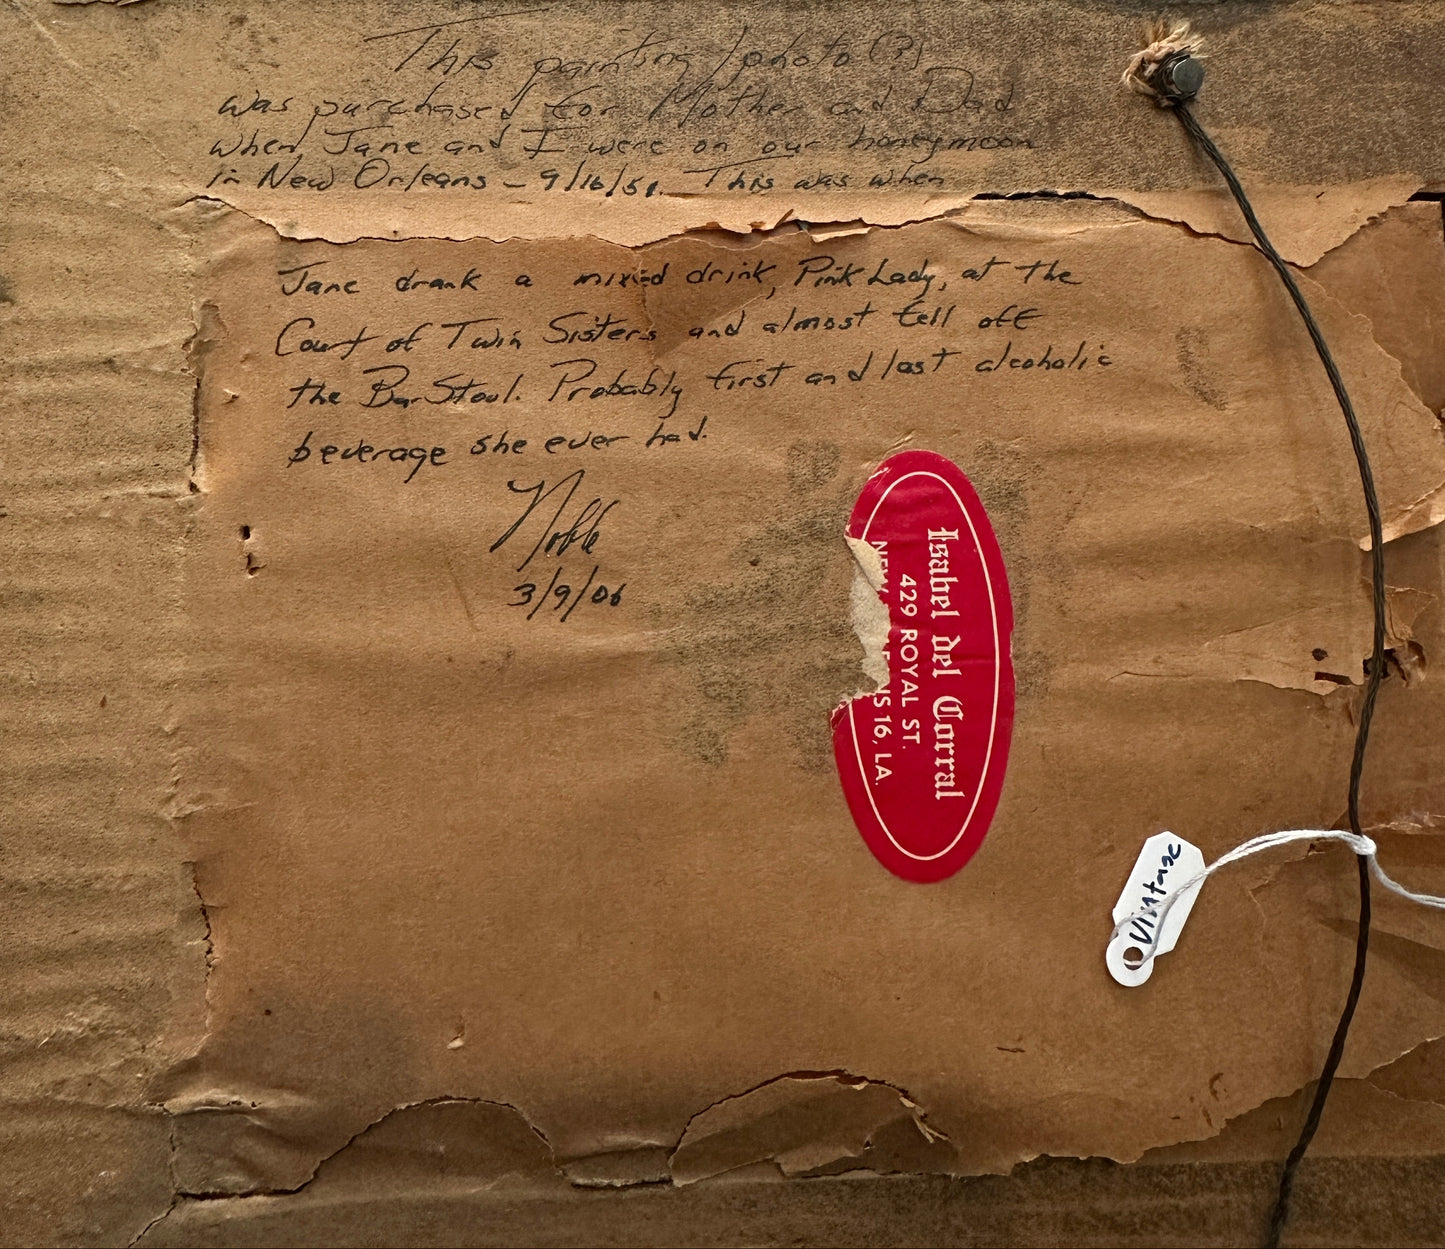 This painting/photo(?)
was purchased for Mother and Dad
when Jane and I were on our honeymoon
in New Orleans - 9/16/51. This was when
Jane drank a mixed drink, Pink Lady, at the
Court of Twin Sisters and almost fell off
the Bar Stool. Probably first and last alcoholic
beverage she ever had.
Noble
3/9/06
Isabel del Corral
429 ROYAL ST.
NEW NS 16, LA.
Vintage